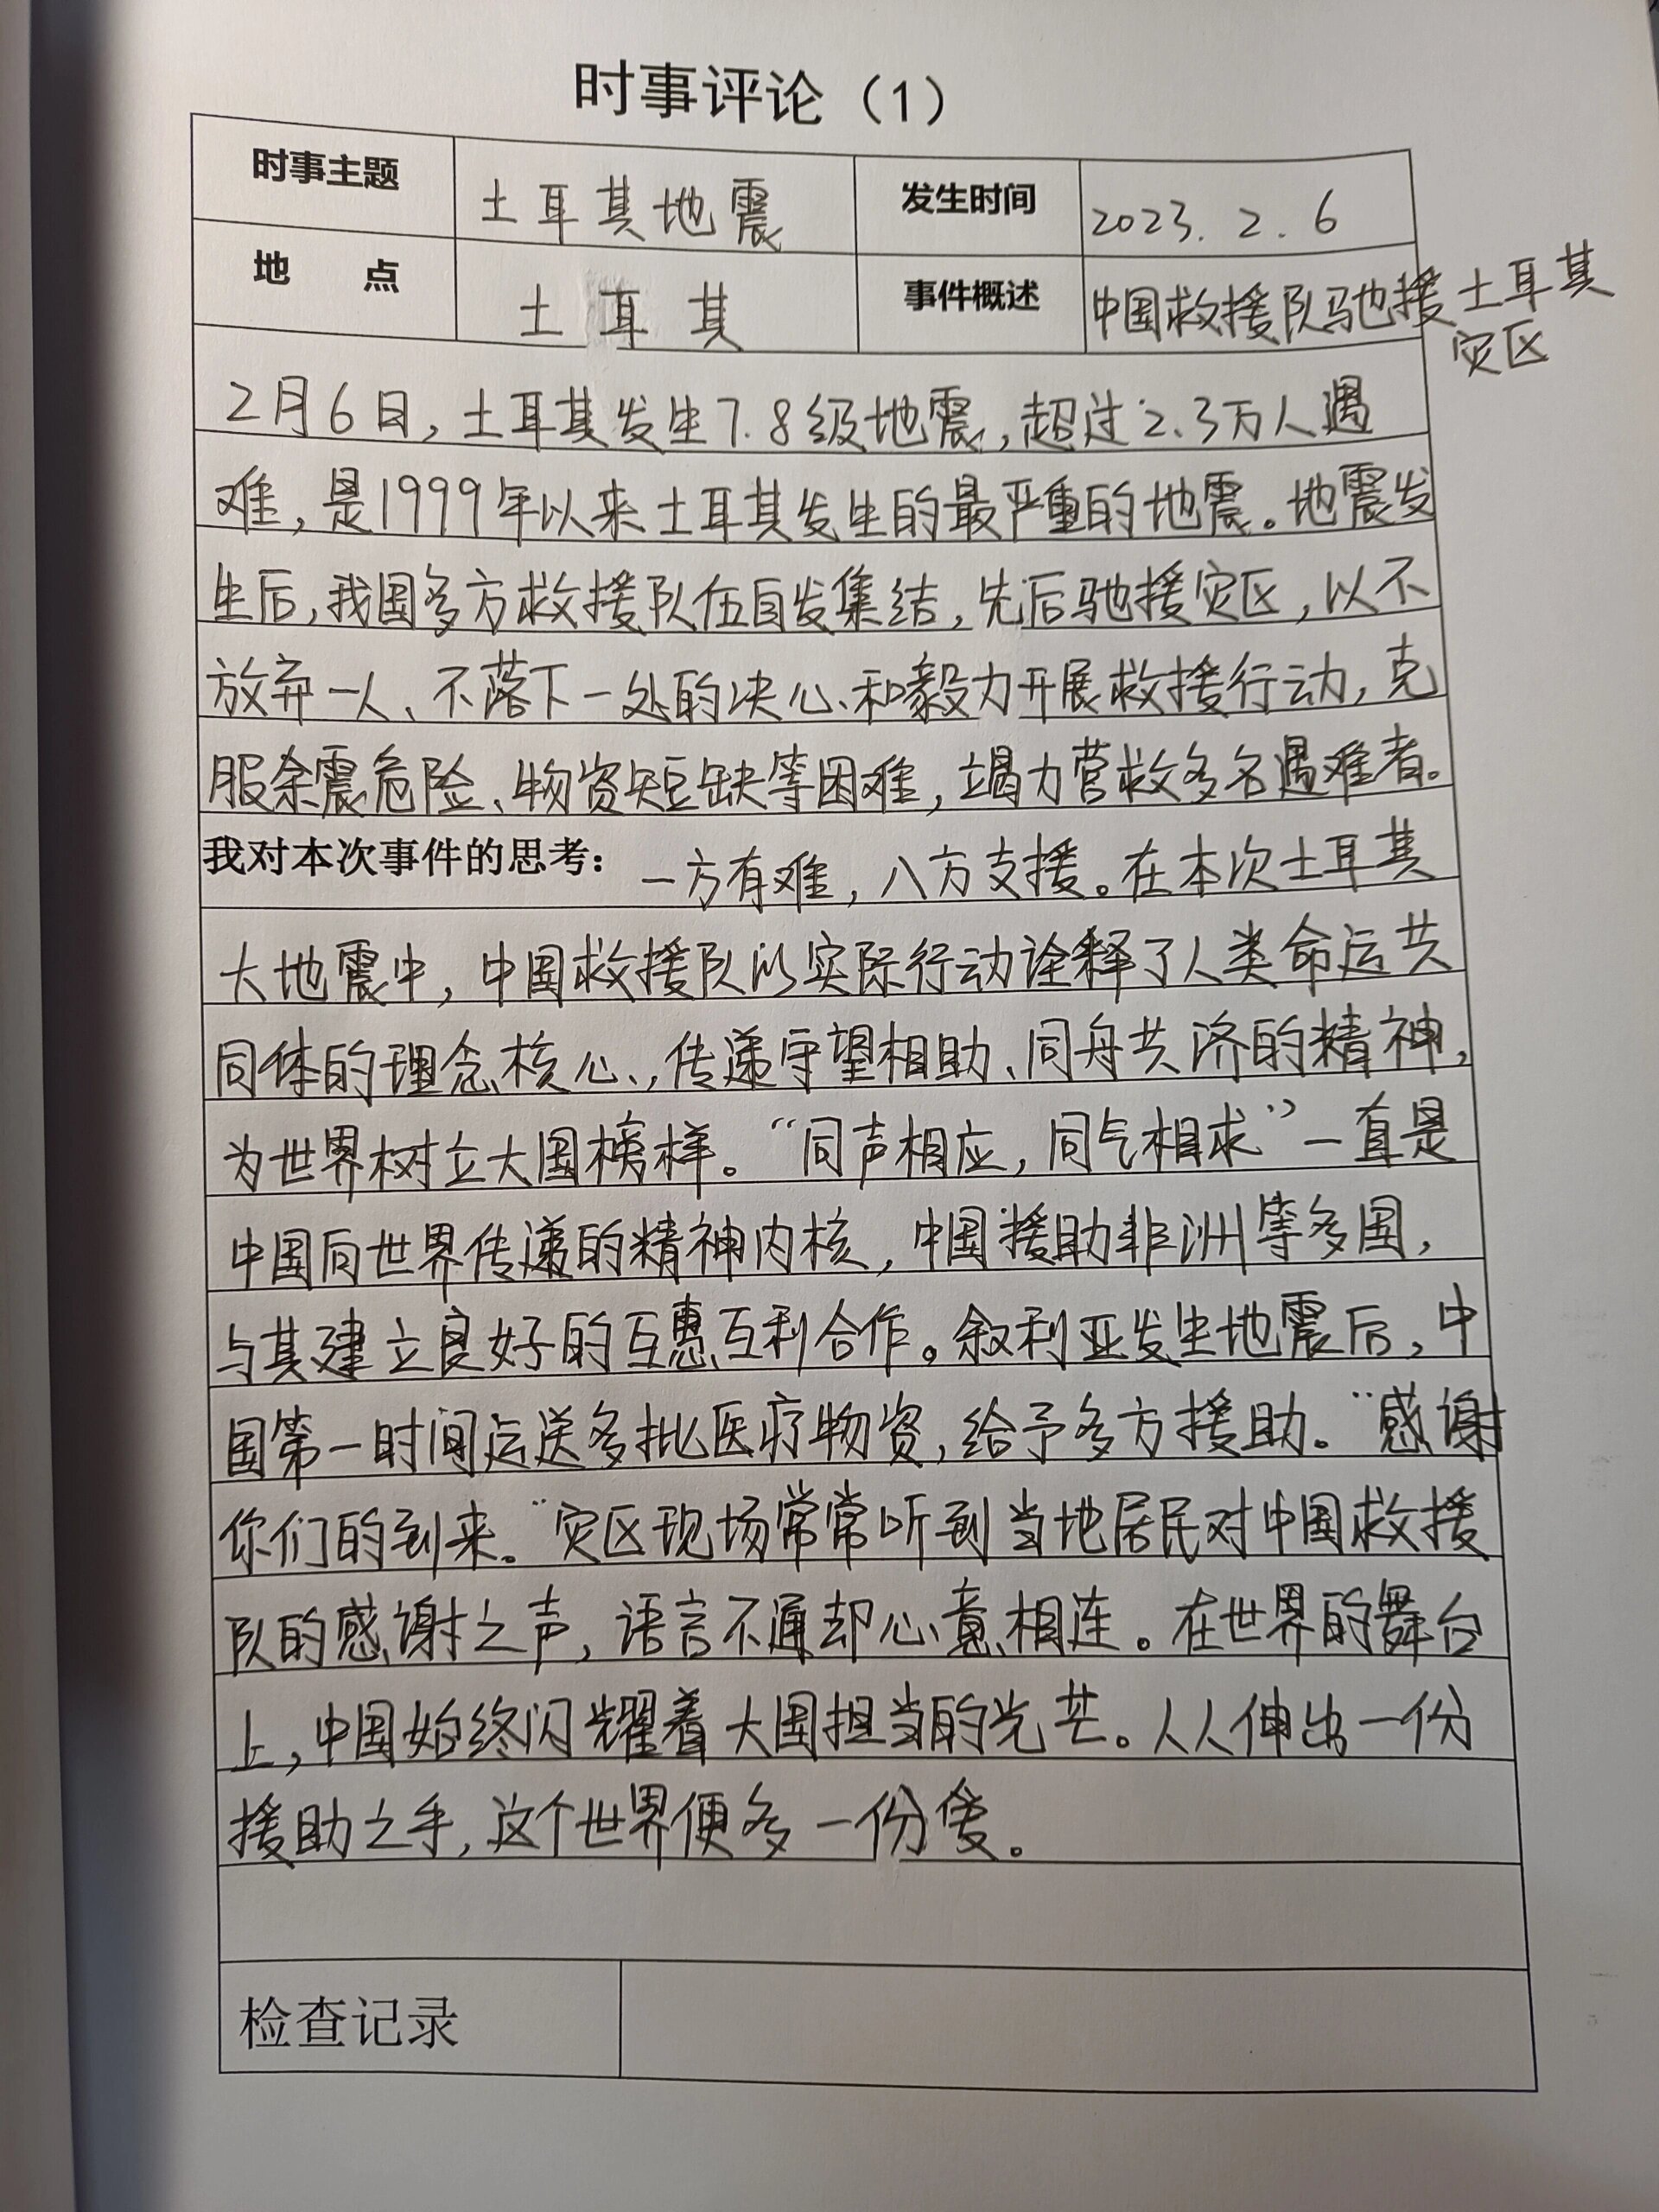 时事评论（1）
时事主题 土耳其地震 发生时间 2023.2.6
地 点 土耳其 事件概述 中国救援队驰援土耳其
灾区
2月6日，土耳其发生7.8级地震，超过2.3万人遇
难，是1999年以来土耳其发生的最严重的地震。地震发
生后，我国多方救援队伍自发集结，先后驰援灾区，以不
放弃一人、不落下一处的决心和毅力开展救援行动，克
服余震危险、物资短缺等困难，竭力营救多名遇难者。
我对本次事件的思考：一方有难，八方支援。在本次土耳其
大地震中，中国救援队以实际行动诠释了人类命运共
同体的理念核心，传递守望相助、同舟共济的精神，
为世界树立大国榜样。“同声相应，同气相求”一直是
中国向世界传递的精神内核，中国援助非洲等多国，
与其建立良好的互惠互利合作。叙利亚发生地震后，中
国第一时间运送多批医疗物资，给予多方援助。“感谢
你们的到来。”灾区现场常常听到当地居民对中国救援
队的感谢之声，语言不通却心意相连。在世界的舞台
上，中国始终闪耀着大国担当的光芒。人人伸出一份
援助之手，这个世界便多一份爱。
检查记录